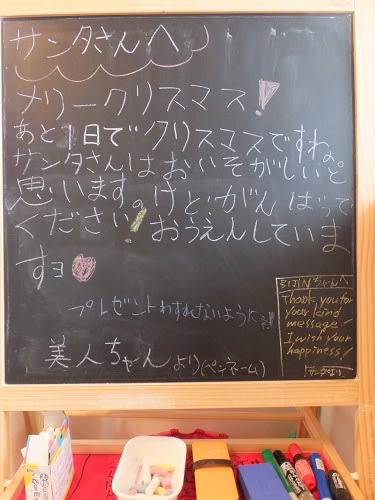 サンタさんへ
メリークリスマス!
あと1日でクリスマスですね。
サンタさんはおいそがしいと
思います。けどがんばって
ください!おうえんしていま
すヨ
プレゼントわすれないように!!
美人ちゃんより(ペンネーム)
BIJINちゃんへ
Thank you for
your kind
message!
I wish your
happiness!
サンタより